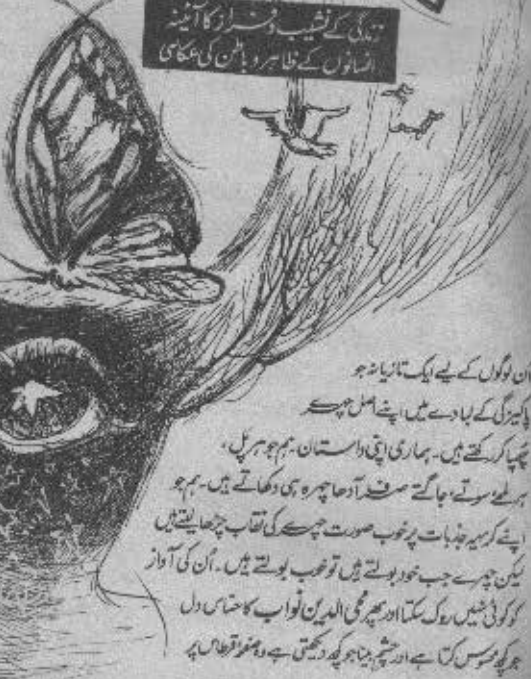 زندگی کے نشیب و فراز کا آئینہ
انسانوں کے ظاہر و باطن کی عکاسی
ان لوگوں کے لیے ایک تازیانہ جو
پاکیزگی کے لبادے میں اپنے اصل چہرے
چھپا کر رکھتے ہیں۔ ہماری اپنی داستان۔ ہم جو ہر پل،
ہر لمحے سوتے، جاگتے صرف آدھا چہرہ ہی دکھاتے ہیں۔ ہم جو
اپنے کریہہ جذبات پر خوب صورت چہرے کی نقاب چڑھا لیتے ہیں
لیکن چہرے جب خود بولتے ہیں تو خوب بولتے ہیں۔ ان کی آواز
کو کوئی نہیں روک سکتا اور پھر محی الدین نواب کا حساس دل
جو کچھ محسوس کرتا ہے اور چشم بینا جو کچھ دیکھتی ہے وہ صفحۂ قرطاس پر